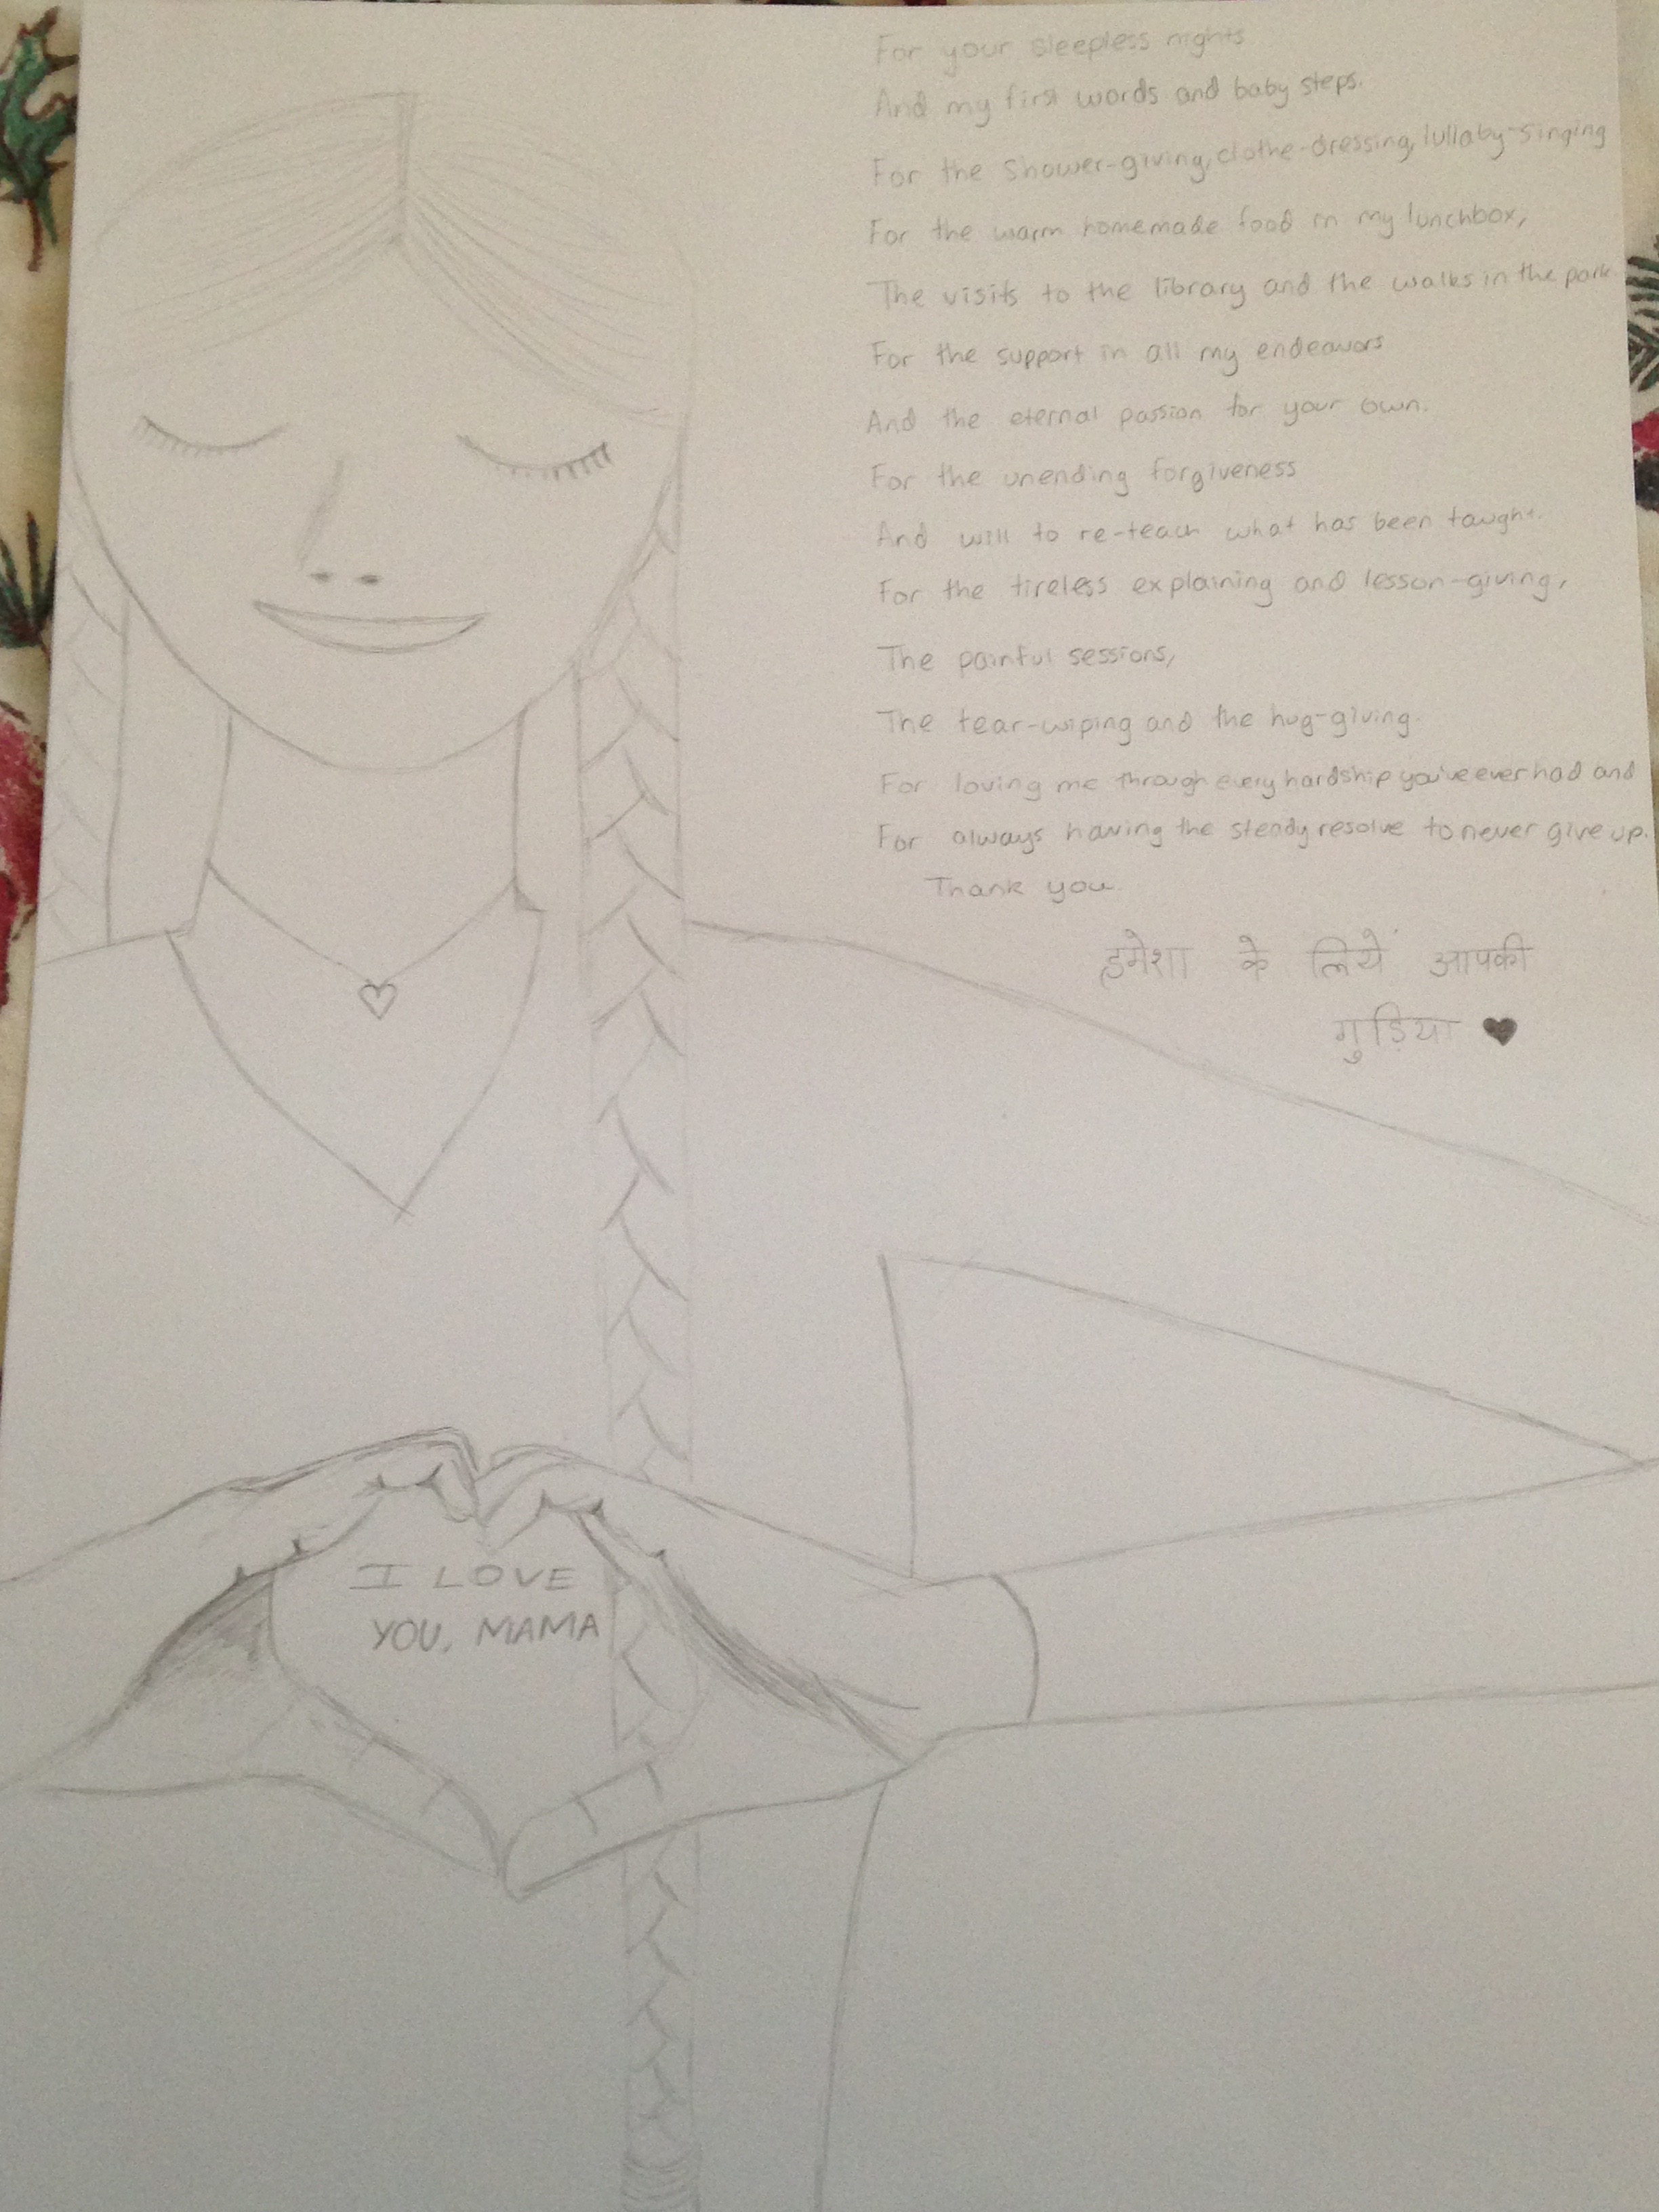 For your sleepless nights
And my first words and baby steps.
For the shower-giving, clothe-dressing, lullaby-singing
For the warm homemade food in my lunchbox,
The visits to the library and the walks in the park
For the support in all my endeavors
And the eternal passion for your own.
For the unending forgiveness
And will to re-teach what has been taught.
For the tireless explaining and lesson-giving,
The painful sessions,
The tear-wiping and the hug-giving.
For loving me through every hardship you've ever had and
For always having the steady resolve to never give up.
Thank you.
हमेशा के लिये आपकी
गुड़िया ♥
I LOVE
YOU, MAMA